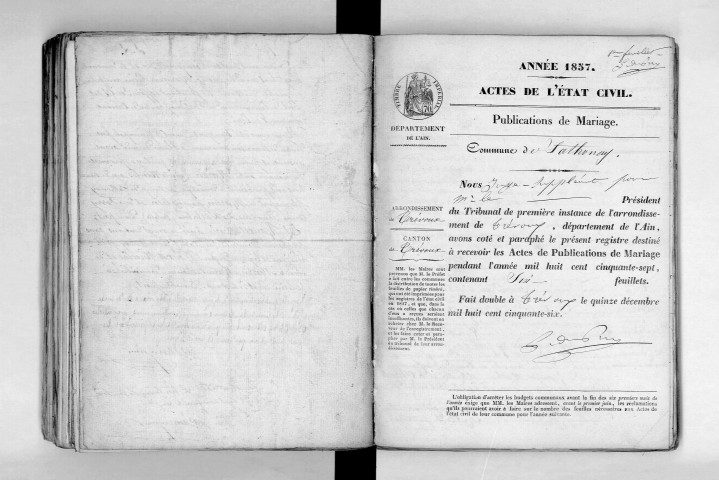 1er feuillet
ANNÉE 1857.
ACTES DE L'ÉTAT CIVIL.
Publications de Mariage.
TIMBRE IMPERIAL
DÉPARTEMENT
DE L'AIN.
Commune de Sathonay.
ARRONDISSEMENT
de Trévoux
CANTON
de Trévoux
MM. les Maires sont
prévenus que M. le Préfet
a fait entre les communes
la distribution de toutes les
feuilles de papier timbré,
qui ont été imprimées pour
les registres de l'état civil
en 1857, et que, dans le
cas où celles que chacun
d'eux a reçues seraient
insuffisantes, ils doivent en
acheter chez M. le Rece-
veur de l'enregistrement,
et les faire coter et para-
pher par M. le Président
du tribunal de leur arron-
dissement.
Nous Juge-Suppléant pour
Mr le Président
du Tribunal de première instance de l'arrondisse-
ment de Trévoux, département de l'Ain,
avons coté et paraphé le présent registre destiné
à recevoir les Actes de Publications de Mariage
pendant l'année mil huit cent cinquante-sept,
contenant Six feuillets.
Fait double à Trévoux le quinze décembre
mil huit cent cinquante-six.
L'obligation d'arrêter les budgets communaux avant la fin des six premiers mois de
l'année exige que MM. les Maires adressent, avant le premier juin, les réclamations
qu'ils pourraient avoir à faire sur le nombre des feuilles nécessaires aux Actes de
l'état civil de leur commune pour l'année suivante.